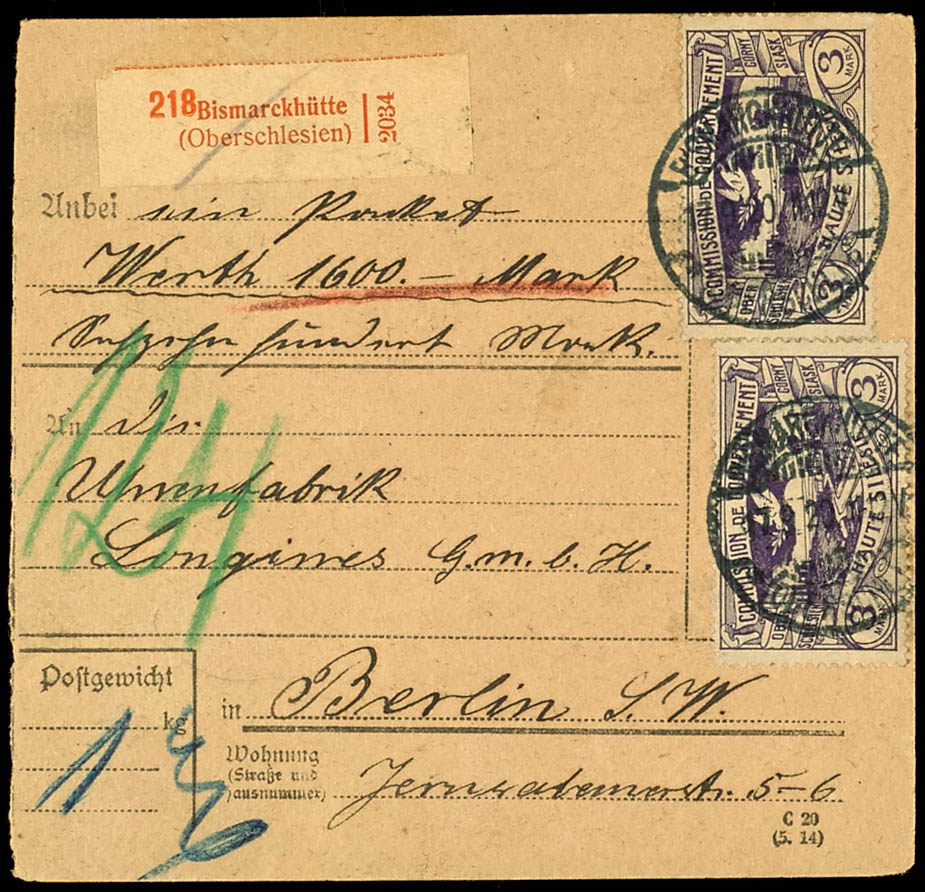 218 Bismarckhütte
(Oberschlesien)
2034
Anbei ein Packet
Werth 1600.- Mark
Sechzehn hundert Mark.
An die
Uhrenfabrik
Longines G.m.b.H.
Postgewicht
1 kg
in Berlin S.W.
Wohnung
(Straße und
Hausnummer) Jerusalemerstr. 5-6
C 20
(5. 14)
COMMISSION DE GOUVERNEMENT
GÓRNY
ŚLĄSK
3
MARK
HAUTE SILÉSIE
OBER
3
COMMISSION DE GOUVERNEMENT
GÓRNY
ŚLĄSK
3
MARK
HAUTE SILÉSIE
OBER
SCHLESIEN
3
MARK